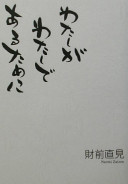 わたしが
わたしで
あるために
財前直見
Naomi Zaizen